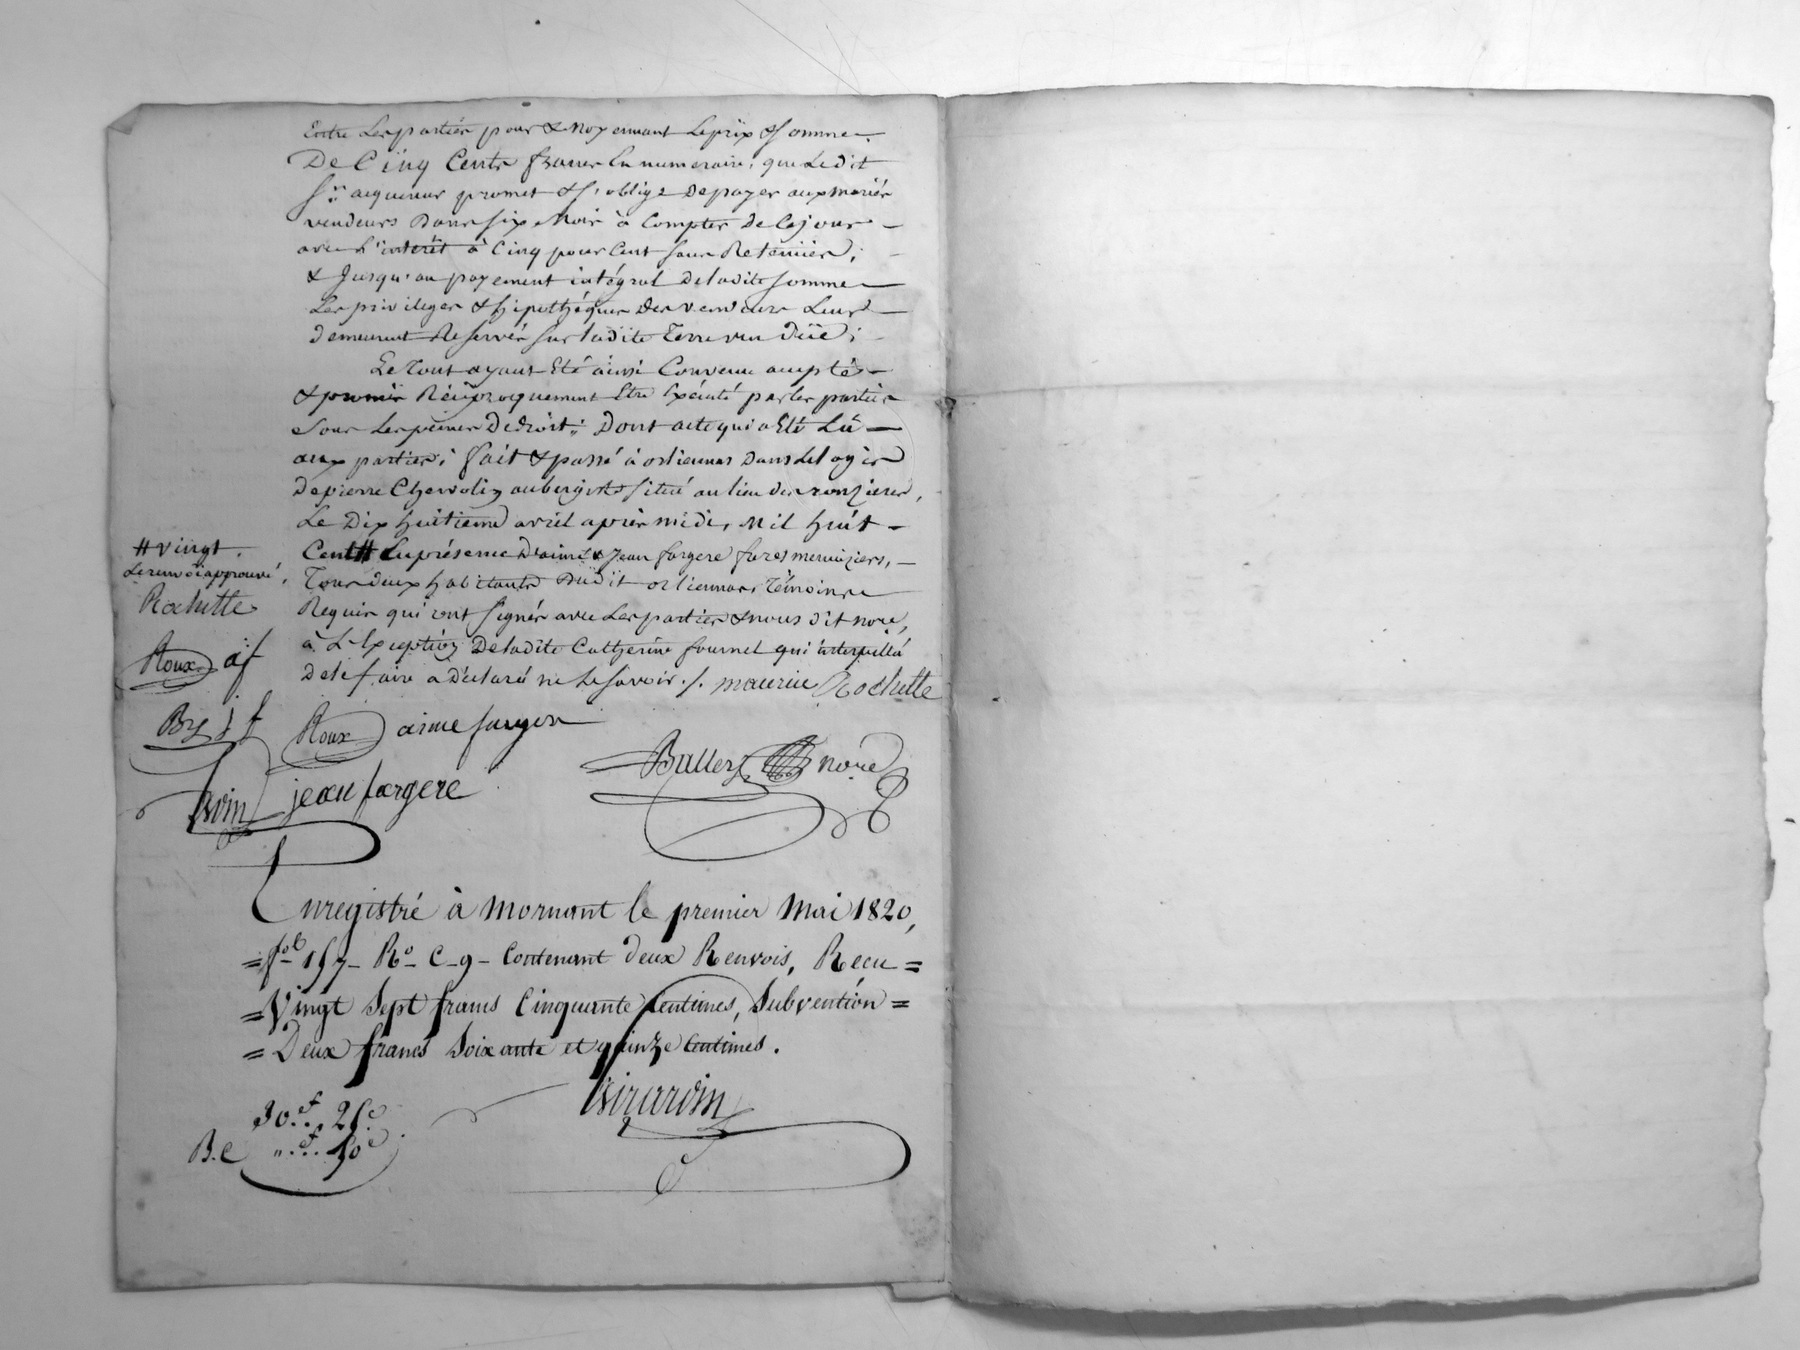 Entre les parties pour & moyennant le prix & somme
De Cinq Cents francs en numeraire, que le dit
Sr. acquereur promet & s'oblige de payer aux mariés
vendeurs Dans six mois à Compter de ce jour
avec l'intérêt à Cinq pour Cent sans Retenüe;
& Jusqu'au payement intégral de ladite somme
les privileges & hipothéques des vendeurs Leurs
demeurent Reservés sur ladite Terre vendüe;
Le Tout ayant Eté ainsi Convenu accepté
& promis Réciproquement Etre Exécuté par les parties
sous les peines de droit; Dont acte qui a Eté Lû
aux parties; fait & passé à orlienas Dans le logis
de pierre Chevoliz aubergiste situé au lieu des ronzieres,
Le Dix huitieme avril après midi, mil huit
Cent # En présence d'aimé & Jean fargere freres menuiziers,
Tous deux habitants Düdit orlienas Témoins
Requis qui ont signés avec les parties & nous dit nore,
à L'Exception de ladite Catherine fournel qui interpellée
de le faire a déclaré ne le savoir ./. maurice Rochette
# vingt.
Le renvoi approuvé,
Rochette
Roux af
Bz j f
Roux aime fargere
jean fargere
Ballez nore
Enregistré à Mornant le premier Mai 1820,
= fol 157 Ro C-9- Contenant deux Renvois, Recu =
= Vingt Sept francs Cinquante Centimes, Subvention =
= Deux francs Soixante et quinze Centimes.
Girardin
30.f. 25c
B.C ".f. 50c